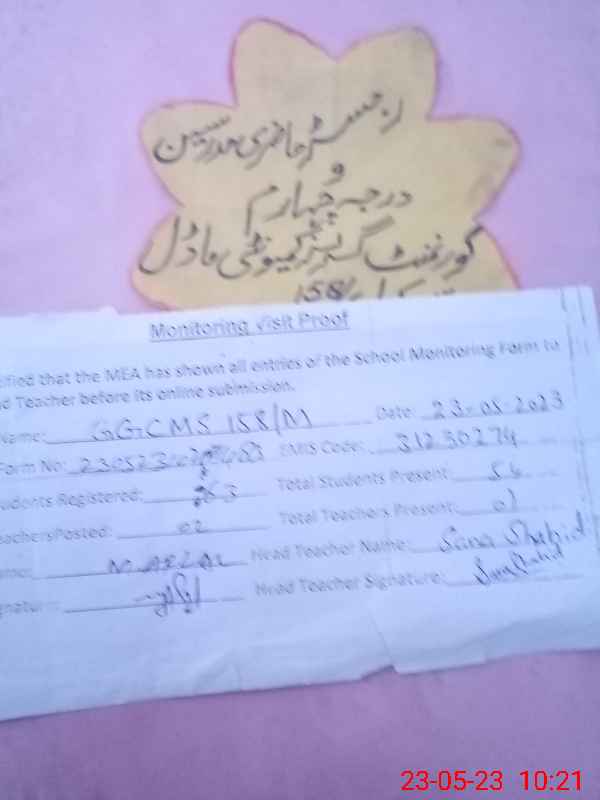 رجسٹر حاضری مدرسین
و
درجہ چہارم
گورنمنٹ گرلز کمیونٹی ماڈل
158/
Monitoring Visit Proof
ified that the MEA has shown all entries of the School Monitoring Form to
d Teacher before its online submission.
Name: GGCMS 158/M Date: 23-05-2023
Form No: EMIS Code: 31230274
udents Registered: Total Students Present: 56
eachersPosted: 02 Total Teachers Present: 01
me: Head Teacher Name: Sana Shahid
gnature: Head Teacher Signature: Sana Shahid
23-05-23 10:21